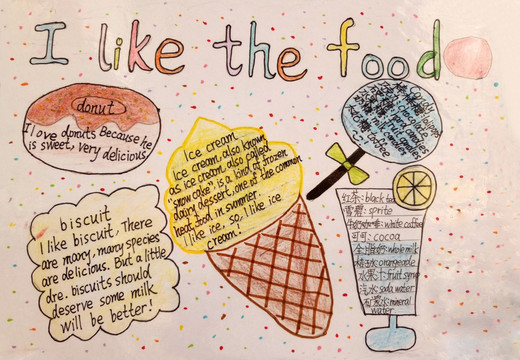 I like the food
donut
I love donuts Because he
is sweet, very delicious
Ice cream
Ice cream, also known
as ice cream, also called
"snow cake", is a kind of frozen
dairy dessert, one of the common
heat food in summer.
I like ice. so, I like ice
cream!
biscuit
I like biscuit, There
are many, many species
are delicious. But a little
dre. biscuits should
deserve some milk
will be better!
coffee
红茶: black tea
雪碧: sprite
white coffee
可可: cocoa
全脂奶: whole milk
orangeade
水果汁: fruit syrup
汽水: soda water
矿泉水: mineral
water